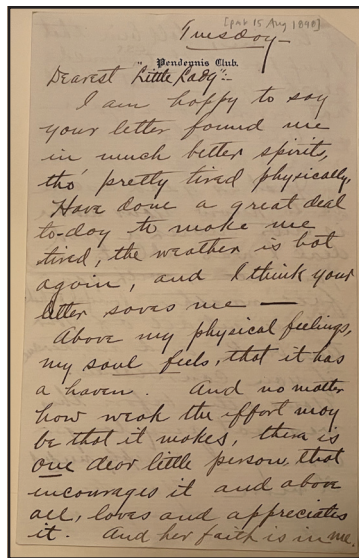 [pm 15 Aug 1898]
Tuesday—
Pendennis Club.
Dearest "Little Lady":-
I am happy to say
your letter found me
in much better spirits,
tho' pretty tired physically,
Have done a great deal
to-day to make me
tired, the weather is hot
again, and I think your
letter saves me —
Above my physical feelings,
my soul feels, that it has
a haven. And no matter
how weak the effort may
be that it makes, there is
one dear little person that
encourages it and above
all, loves and appreciates
it. And her faith is in me.